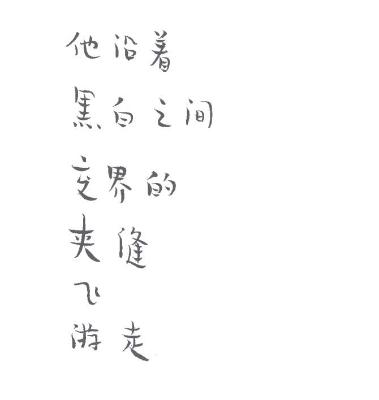 他沿着
黑白之间
交界的
夹缝
飞
游走